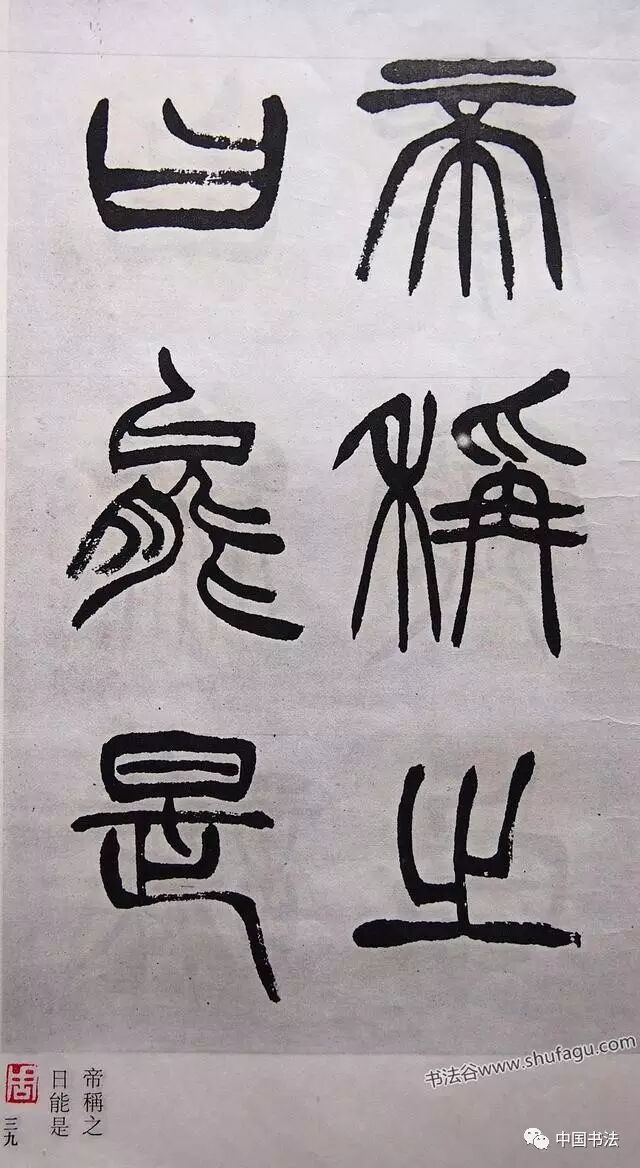 帝稱之
曰能是
帝稱之
日能是
三九
书法谷www.shufagu.com
中国书法